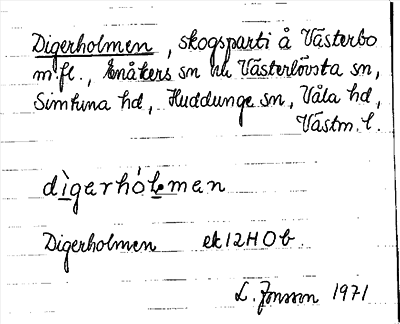 Digerholmen, skogsparti å Västerbo
m.fl., Enåkers sn o Västerlövsta sn,
Simtuna hd, Huddunge sn, Våla hd,
Västm. l.
dìgerhól̥men
Digerholmen ek 12H0b.
L. Jonsson 1971